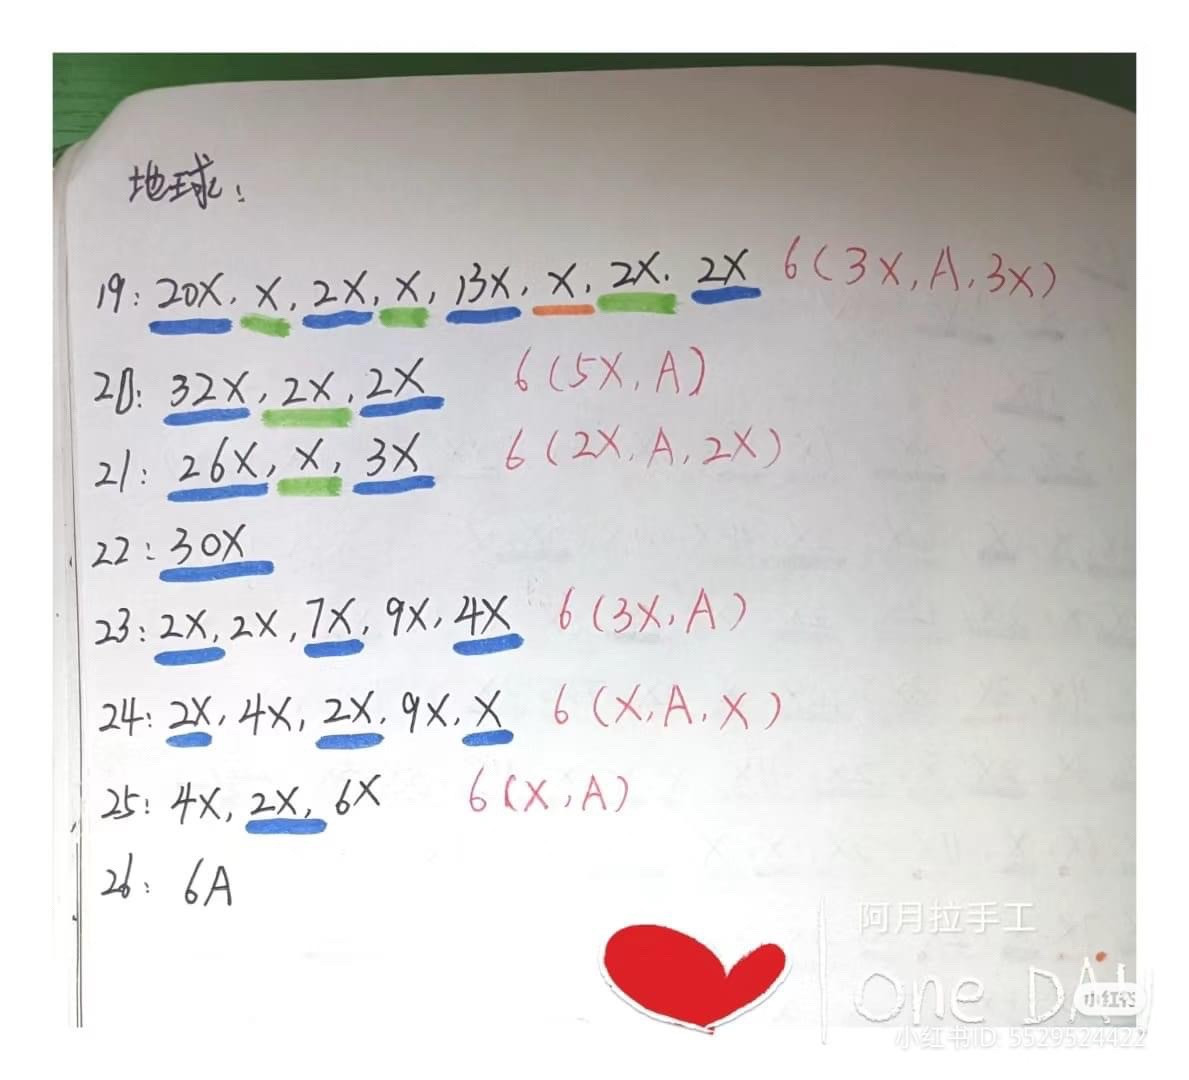 地球:
19: 20X, X, 2X, X, 13X, X, 2X. 2X 6(3X, A, 3X)
20: 32X, 2X, 2X 6(5X, A)
21: 26X, X, 3X 6(2X, A, 2X)
22: 30X
23: 2X, 2X, 7X, 9X, 4X 6(3X, A)
24: 2X, 4X, 2X, 9X, X 6(X, A, X)
25: 4X, 2X, 6X 6(X, A)
26: 6A
阿月拉手工
One DAY
小红书
小红书ID: 5529524422